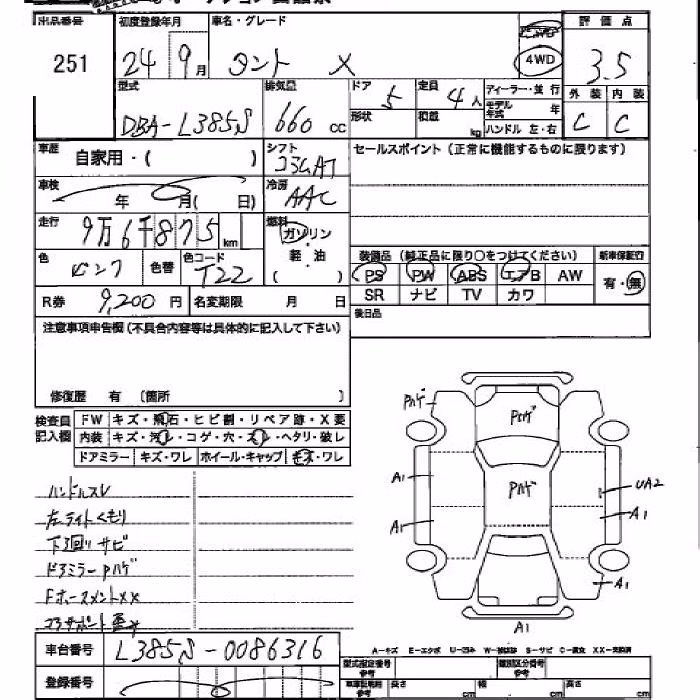 出品番号 251
初度登録年月 24年 9月
車名・グレード タント X
4WD
評価点 3.5
外装 C 内装 C
型式 DBA-L385S
排気量 660 cc
ドア 5
形状
定員 4人
積載 kg
ディーラー・並行
モデル年式 年
ハンドル 左・右
車歴 自家用・( )
シフト コラムAT
セールスポイント (正常に機能するものに限ります)
車検 年 月( 日)
冷房 AAC
走行 9万6千875km
燃料 ガソリン・軽油 ( )
色 ピンク 色替 色コード T22
装備品 (純正品に限り○をつけてください) 新車保証書
PS PW ABS エアB AW 有・無
SR ナビ TV カワ
R券 9,200円 名変期限 月 日
後日品
注意事項申告欄(不具合内容等は具体的に記入して下さい)
修復歴 有 〔箇所 〕
検査員記入欄 FW キズ・飛石・ヒビ割・リペア跡・X要
内装 キズ・汚レ・コゲ・穴・スレ・ヘタリ・破レ
ドアミラー キズ・ワレ ホイール・キャップ キズ・ワレ
ハンドルスレ
左ライトくもり
下回りサビ
ドアミラーPハゲ
コアサポート歪み
Pハゲ
Pハゲ
Pハゲ
A1
UA2
A1
A1
A1
A1
車台番号 L385S-0086316
登録番号
A-キズ E-エクボ U-凹み W-補修跡 S-サビ C-腐食 XX-交換済
型式指定番号 参考 類別区分番号 参考
長さ cm 幅 cm 高さ cm